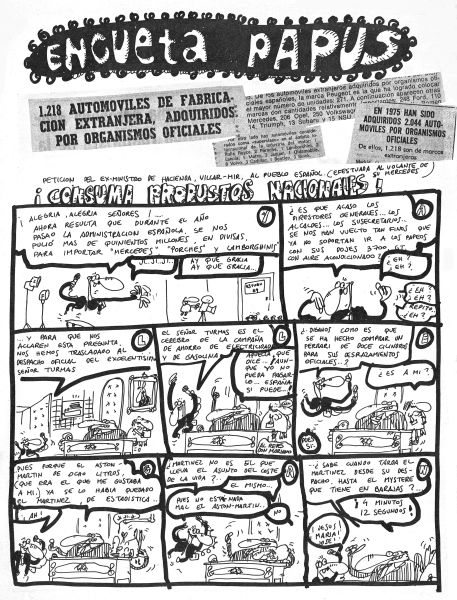 ENCUETA PAPUS
1.218 AUTOMOVILES DE FABRICA-
CION EXTRANJERA, ADQUIRIDOS
POR ORGANISMOS OFICIALES
De los automóviles extranjeros adquiridos por organismos ofi-
ciales españoles, la marca Peugeot es la que ha logrado colocar
mayor número de unidades: 271. A continuación aparecen otras
marcas con cantidades
Mercedes, 206 Opel, 250
14 Triumph, 13 Sunbeam y 15 NSU
EN 1975 HAN SIDO
ADQUIRIDOS 2.044 AUTO-
MOVILES POR ORGANISMOS
OFICIALES
De ellos, 1.218 son de marcas
extranjeras
PETICION DEL EX-MINISTRO DE HACIENDA, VILLAR-MIR, AL PUEBLO ESPAÑOL (EFECTUADA AL VOLANTE DE
SU MERCEDES)
¡CONSUMA PRODUSTOS NACIONALES!
¡ALEGRIA, ALEGRIA SEÑORES!
AHORA RESULTA QUE DURANTE EL AÑO
PASAO LA ADMINISTRACION ESPAÑOLA, SE NOS
PULIÓ MAS DE QUINIENTOS MILLONES, EN DIVISAS,
PARA IMPORTAR "MERCEDES" "PORCHES" Y LAMBORGHINIS"
JE..JI..JI..
AY QUE GRACIA
AY QUE GRACIA..
¿ES QUE ACASO LOS
DIRESTORES GENERALES... LOS
ALCALDES... LOS SUSECRETARIOS...
SE NOS HAN VUELTO TAN FIJOS QUE
YA NO SOPORTAN IR A LOS PAPEOS
CON SUS DOJES 3700 GT
CON AIRE ACONDICIONADO?
¿EH?
¿EH?
¿EH?
¿EH?
REPITO,
¿EH?
..Y PARA QUE NOS
ACLAREN ESTA PREGUNTA,
NOS HEMOS TRASLADAO AL
DESPACHO OFICIAL DEL EXCELENTISIMO
SEÑOR TURMAS
EL SEÑOR TURMAS ES EL
CEREBRO DE LA CAMPAÑA
DE AHORRO DE ELECTRICIDAD
Y DE GASOLINA
AQUELLA QUE
DICE... "AUN-
QUE YO NO
PUEDA PAGAR-
LO... ESPAÑA
SI PUEDE...
¿DIGNOS COMO ES QUE
SE HA HECHO COMPRAR UN
FERARI DE DOCE CILINDROS
PARA SUS DESPLAZAMIENTOS
OFICIALES..?
¿ES A MI?
PUES
SI..
PUES PORQUE EL ASTON-
MARTIN DE OCHO LITROS,
(QUE ERA EL QUE ME GUSTABA
A MI) YA SE LO HABIA QUEDADO
EL MARTINEZ DE ESTADISTICA..
..AH!
¿MARTINEZ NO ES EL QUE
LLEVA EL ASUNTO DEL COSTE
DE LA VIDA?..
EL MISMO...
PUES NO ESTÁ NADA
MAL EL ASTON-MARTIN...
NO
¿Y SABE CUANDO TARDA EL
MARTINEZ DESDE SU DES-
PACHO, HASTA EL MYSTERE
QUE TIENE EN BARAJAS?..
4 MINUTOS
12 SEGUNDOS!
¡JESUS!
MARIA!
JOSE!